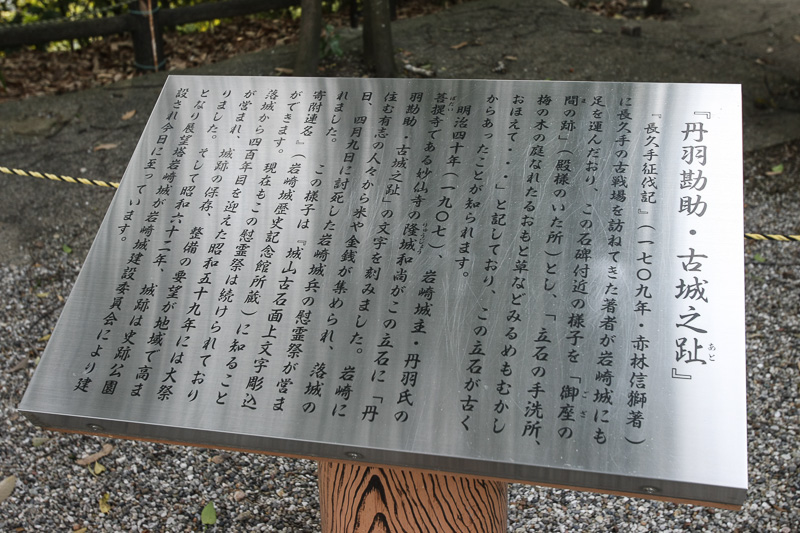 『丹羽勘助・古城之趾』
あと
『長久手征伐記』(一七〇九年・赤林信獅著)
に長久手の古戦場を訪ねてきた著者が岩崎城にも
足を運んだおり、この石碑付近の様子を「御座の
ござ
間の跡」(殿様のいた所)とし、「立石の手洗所、
ま
梅の木の庭なれたるおもと草などみるめもむかし
おほえて・・・」と記しており、この立石が古く
からあったことが知られます。
明治四十年(一九〇七)、岩崎城主・丹羽氏の
菩提寺である妙仙寺の隆城和尚がこの立石に「丹
ぼだい
りゅうじょう
羽勘助・古城之趾」の文字を刻みました。岩崎に
住む有志の人々から米や金銭が集められ、落城の
日、四月九日に討死した岩崎城兵の慰霊祭が営ま
れました。この様子は『城山古石面上文字彫込
寄附連名』(岩崎城歴史記念館所蔵)に知ること
ができます。現在もこの慰霊祭は続けられており
落城から四百年目を迎えた昭和五十九年には大祭
が営まれ、城跡の保存、整備の要望が地域で高ま
りました。そして昭和六十二年、城跡は史跡公園
となり展望塔岩崎城が岩崎城建設委員会により建
設され今日に至っています。